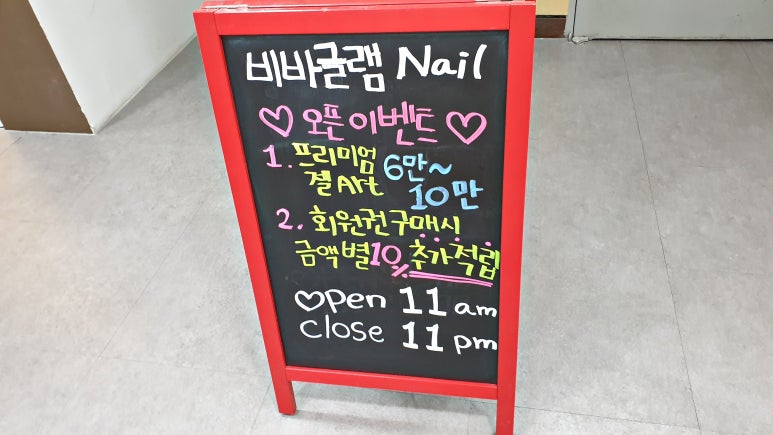 비바글램 Nail
♡ 오픈 이벤트 ♡
1. 프리미엄 6만~
젤 Art 10만
2. 회원권 구매시
금액별 10% 추가적립
♡pen 11 am
close 11 pm